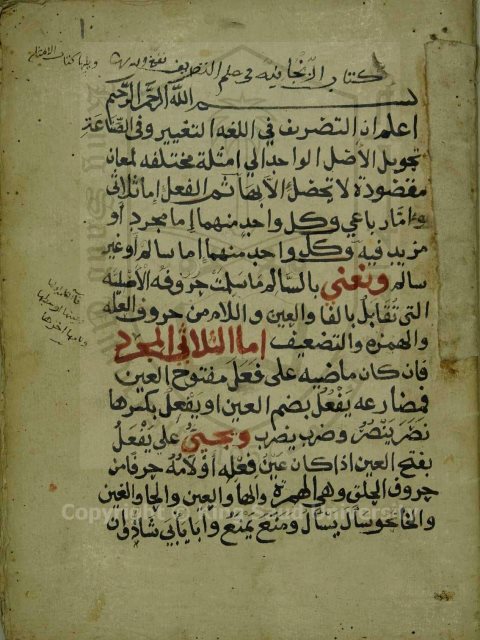 كتاب الزنجانيه في علم التصريف
بسم الله الرحمن الرحيم
اعلم ان التصريف في اللغه التغيير وفي الصناعة
تحويل الأصل الواحد الي امثلة مختلفه لمعان
مقصودة لا تحصل الا بها ثم الفعل اما ثلاثي
واما رباعي وكل واحد منهما اما مجرد أو
مزيد فيه وكل واحد منهما اما سالم أو غير
سالم ونعني بالسالم ما سلمت حروفه الأصلية
التي تقابل بالفا والعين واللام من حروف العله
والهمزه والتضعيف اما الثلاثي المجرد
فان كان ماضيه على فعل مفتوح العين
فمضارعه يفعل بضم العين او يفعل بكسرها
نصر ينصر وضرب يضرب ويجيئ على يفعل
بفتح العين اذا كان عين فعله أو لامه حرفا من
حروف الحلق وهي الهمزه والها والعين والحا والغين
والخا نحو سأل يسأل ومنع يمنع وأبا يأبي شاذ وان
Copyright © King Saud University